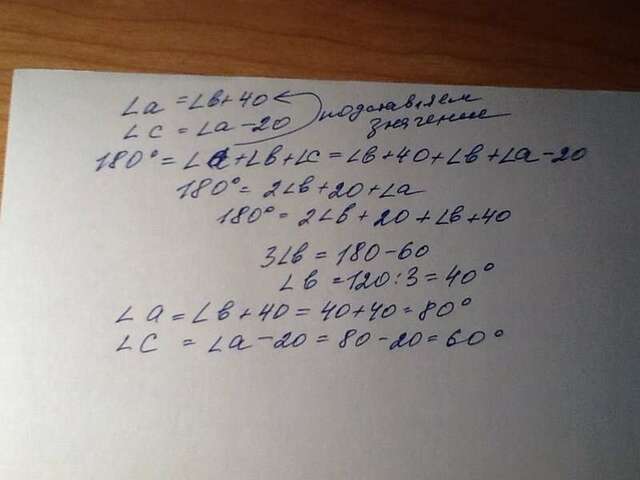 ∠a = ∠b+40 подставляем
∠C = ∠a-20 значение
180° = ∠a+∠b+∠c = ∠b+40+∠b+∠a-20
180° = 2∠b+20+∠a
180° = 2∠b+20+∠b+40
3∠b = 180-60
∠b = 120:3=40°
∠a = ∠b+40 = 40+40=80°
∠C = ∠a-20 = 80-20=60°